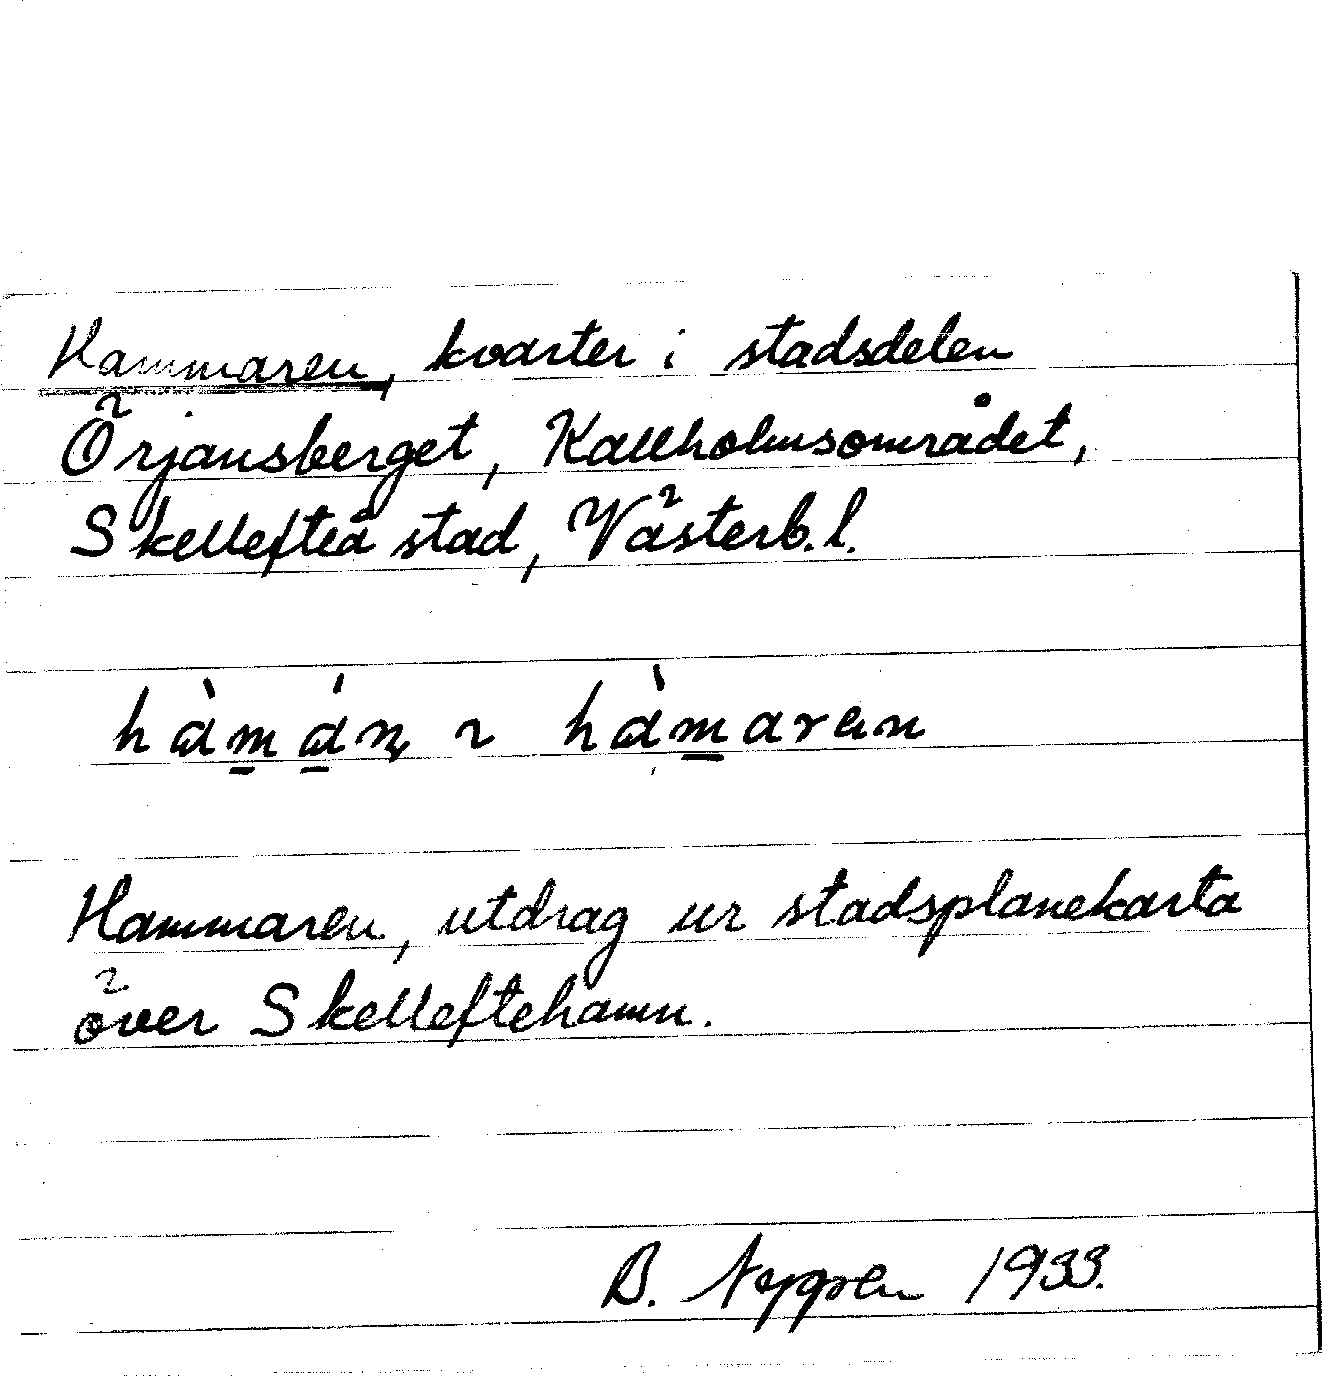 Hammaren, kvarter i stadsdelen
Örjansberget, Kallholmsområdet,
Skellefteå stad, Västerb. l.
hàmáṇ ~ hàmaren
Hammaren, utdrag ur stadsplanekarta
över Skelleftehamn.
B. 1933.